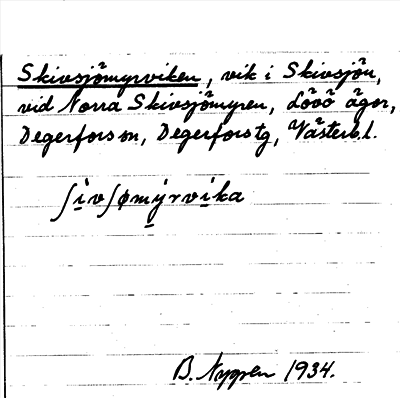 Skivsjömyrviken, vik i Skivsjön,
vid Norra Skivsjömyren, Lövö ägor,
Degerfors sn, Degerfors tg, Västerb.l.
ʃìvʃømỳrvika
B. Nygren 1934.